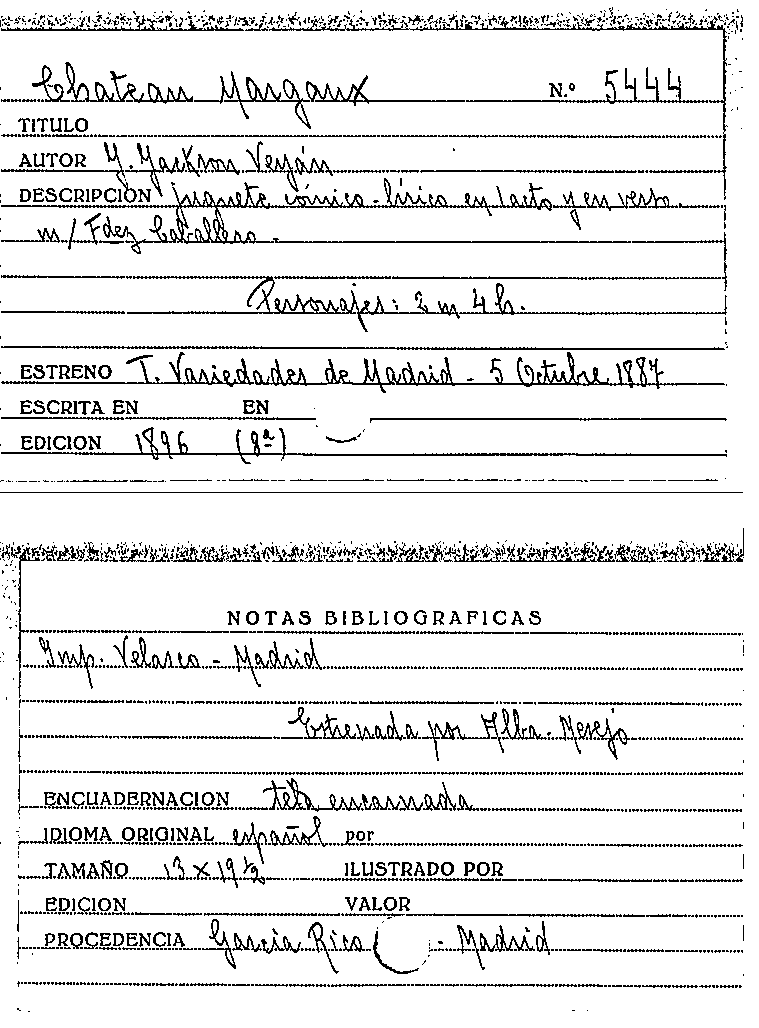 Chateau Margaux N.º 5444
TITULO
AUTOR J. Jackson Veyán
DESCRIPCIÓN juguete cómico-lírico en 1 acto y en verso.
m/ Fdez Caballero.
Personajes: 2 m 4 h.
ESTRENO T. Variedades de Madrid - 5 Octubre 1887
ESCRITA EN EN
EDICION 1896 (8ª)
NOTAS BIBLIOGRAFICAS
Imp. Velasco - Madrid
Estrenada por Alba - Mesejo
ENCUADERNACION tela encarnada
IDIOMA ORIGINAL español por
TAMAÑO 13 x 19 ½ ILUSTRADO POR
EDICION VALOR
PROCEDENCIA García Rico - Madrid